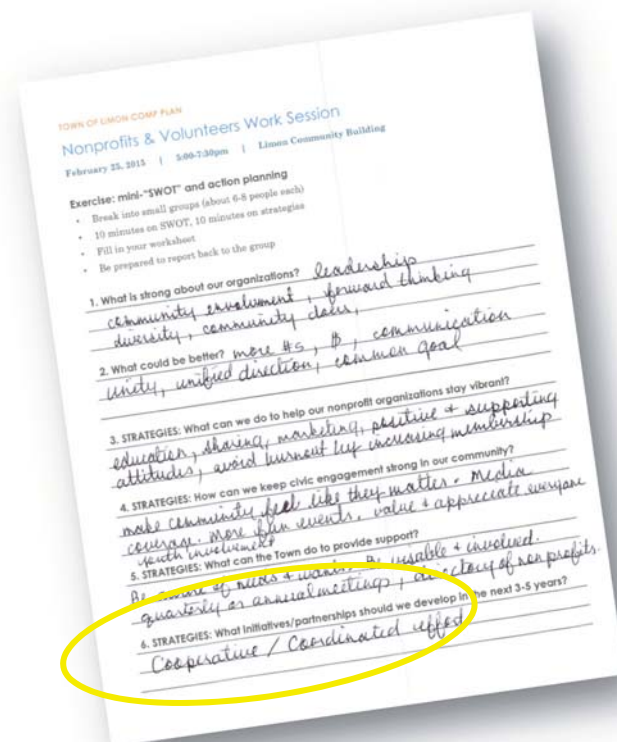 TOWN OF LIMON COMP PLAN
Nonprofits & Volunteers Work Session
February 25, 2013 | 5:00-7:30pm | Limon Community Building
Exercise: mini-"SWOT" and action planning
• Break into small groups (about 6-8 people each)
• 10 minutes on SWOT, 10 minutes on strategies
• Fill in your worksheet
• Be prepared to report back to the group
1. What is strong about our organizations? leadership
community envolvment, forward thinking
diversity, community
2. What could be better? more #s, $, communication
unity, unified direction, common goal
3. STRATEGIES: What can we do to help our nonprofit organizations stay vibrant?
education, sharing, marketing, positive + supporting
attitudes, avoid burnout by increasing membership
4. STRATEGIES: How can we keep civic engagement strong in our community?
make community feel like they matter. Media
coverage. More fun events. value + appreciate everyone
youth involvement
5. STRATEGIES: What can the Town do to provide support?
Be aware of needs + wants. Be visable + involved.
quarterly or annual meetings, directory of non profits.
6. STRATEGIES: What initiatives/partnerships should we develop in the next 3-5 years?
Cooperative / Coordinated effort